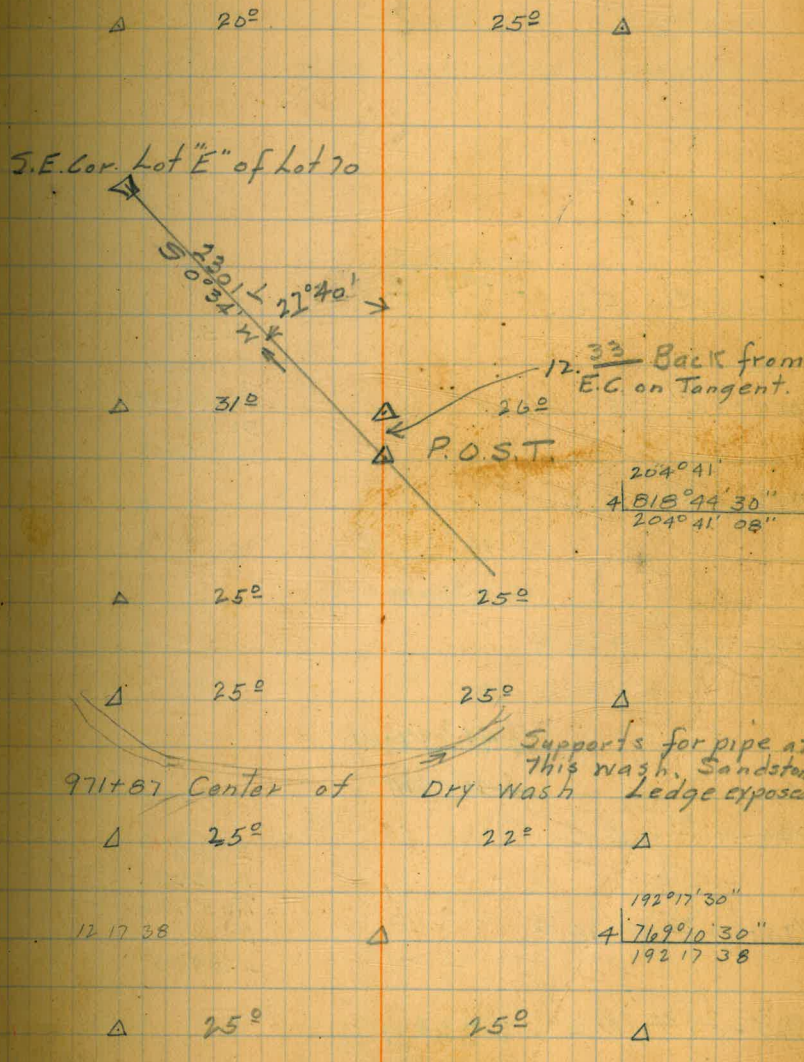 20º 25º
S.E. Cor. Lot "E" of Lot 70
2301
S 0°34' W
27°40'
12.33 Back from
E.C. on Tangent.
31º 26º
P.O.S.T.
204°41'
4 818°44'30"
204°41'08"
25º 25º
25º 25º
Supports for pipe
This wash. Ledge
971+87 Center of Dry Wash
25º 22º
192°17'30"
12 17 38
4 769°10'30"
192 17 38
25º 25º